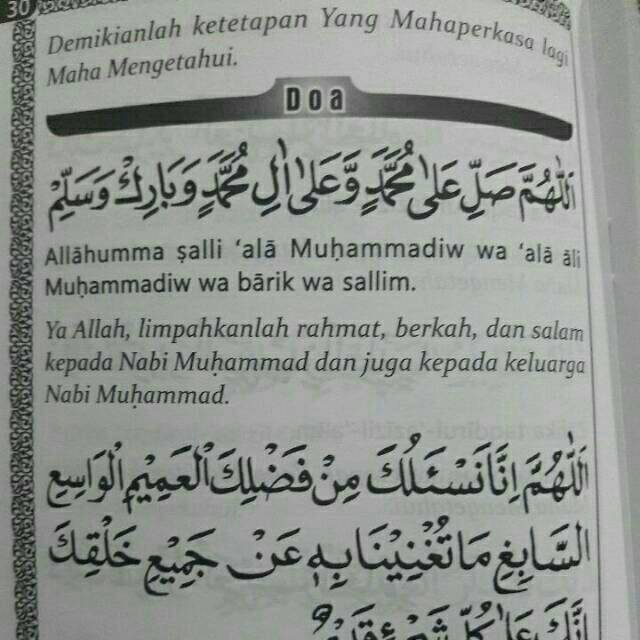 30
Demikianlah ketetapan Yang Mahaperkasa lagi
Maha Mengetahui.
Doa
اَللّٰهُمَّ صَلِّ عَلٰى مُحَمَّدٍ وَّعَلٰى اٰلِ مُحَمَّدٍ وَبَارِكْ وَسَلِّمْ
Allāhumma ṣalli ‘alā Muḥammadiw wa ‘alā āli
Muḥammadiw wa bārik wa sallim.
Ya Allah, limpahkanlah rahmat, berkah, dan salam
kepada Nabi Muḥammad dan juga kepada keluarga
Nabi Muḥammad.
اَللّٰهُمَّ اِنَّا نَسْئَلُكَ مِنْ فَضْلِكَ الْعَمِيْمِ الْوَاسِعِ
السَّابِغِ مَا تُغْنِيْنَا بِهٖ عَنْ جَمِيْعِ خَلْقِكَ
اِنَّكَ عَلٰى كُلِّ شَيْءٍ قَدِيْرٌ